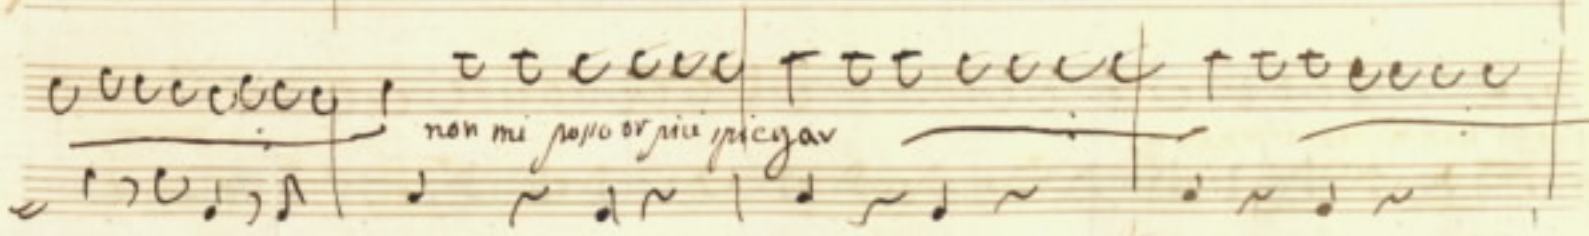 non mi posso or più spiegar